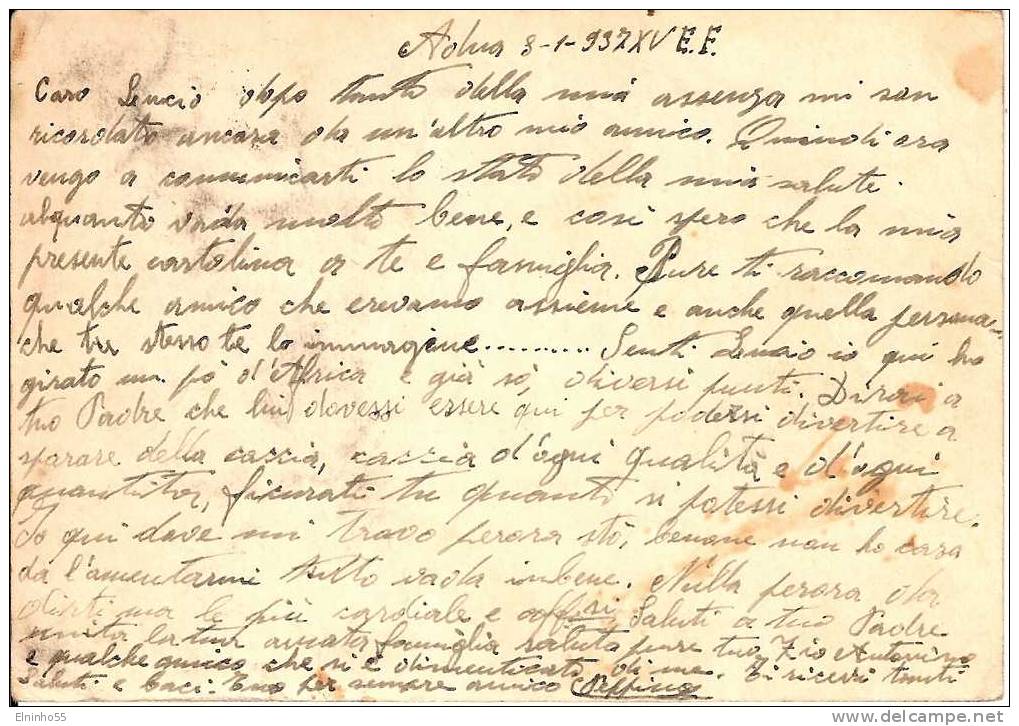 Adua 3-1-937 XV E.F.
Caro Lucio dopo tanto della mia assenza mi son
ricordato ancora da un'altro mio amico. Quindi ora
vengo a comunicarti lo stato della mia salute.
alquanto vada molto bene, e cosi spero che la mia
presente cartolina a te e famiglia. Pure ti raccomando
qualche amico che erevamo assieme e anche quella persona
che tu stesso te lo immagine.......... Senti Lucio io qui ho
girato un pò d'Africa e già sò, diversi punti. Dirai a
tuo Padre che lui dovessi essere qui per podersi divertire a
sparare della caccia, caccia d'ogni qualità e d'ogni
quantita, ficurati tu quanti si potessi divertire.
Io qui dove mi trovo perora stò, benone non ho cosa
da l'amentarmi tutto vada inbene. Nulla perora da
dirti ma le più cordiale e aff.si Saluti a tuo Padre
unita la tua amata famiglia saluta pure tuo Zio Antonino
e qualche amico che si è dimenticato di me. Ti ricevi tanti
Saluti e baci. Tuo per sempre amico Peppino
Elninho55
delcampe.net